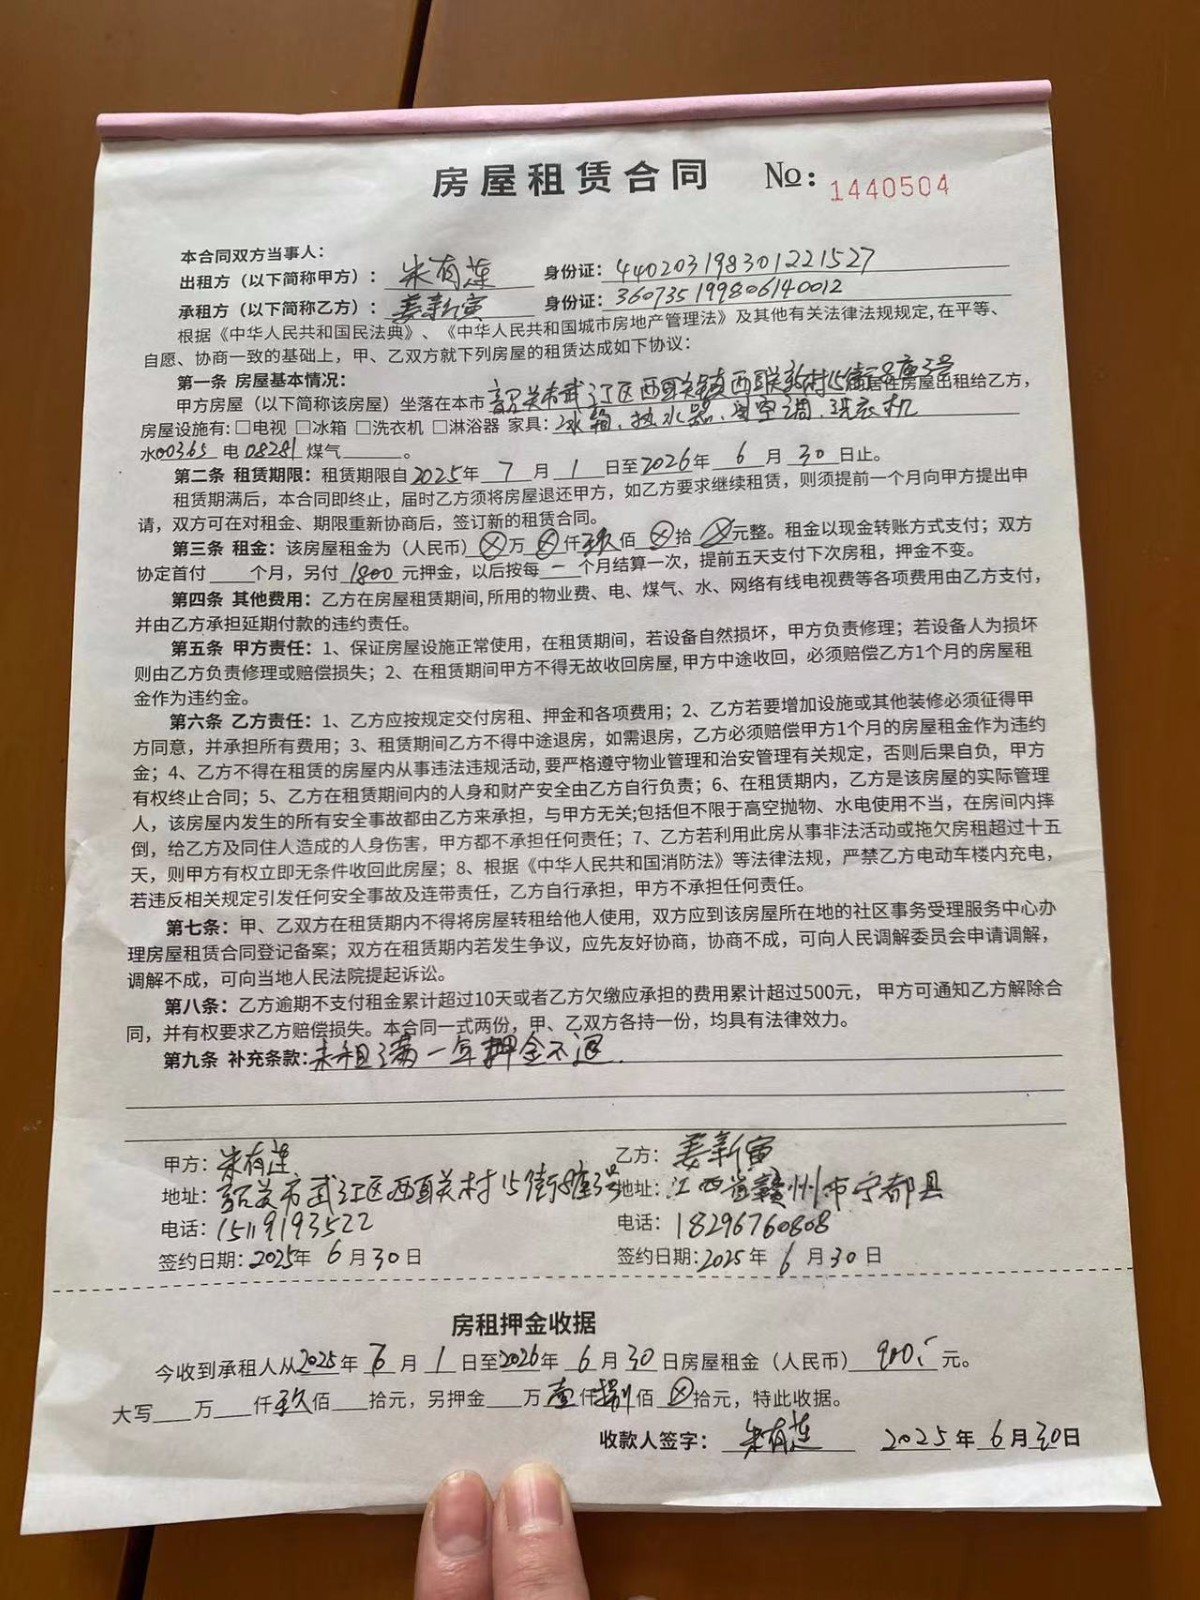 房屋租赁合同 №：1440504
本合同双方当事人：
出租方（以下简称甲方）：朱有莲 身份证：440203198301221527
承租方（以下简称乙方）：姜新寅 身份证：360735199806140012
根据《中华人民共和国民法典》、《中华人民共和国城市房地产管理法》及其他有关法律法规规定,在平等、
自愿、协商一致的基础上，甲、乙双方就下列房屋的租赁达成如下协议：
第一条 房屋基本情况：
甲方房屋（以下简称该房屋）坐落在本市韶关市武江区西联镇西联新村15街8座3号居住房屋出租给乙方，
房屋设施有:□电视 □冰箱 □洗衣机 □淋浴器 家具：冰箱、热水器、空调、洗衣机
水00365 电08281 煤气______。
第二条 租赁期限：租赁期限自2025年7月1日至2026年6月30日止。
租赁期满后，本合同即终止，届时乙方须将房屋退还甲方，如乙方要求继续租赁，则须提前一个月向甲方提出申
请，双方可在对租金、期限重新协商后，签订新的租赁合同。
第三条 租金：该房屋租金为（人民币）⊗万⊗仟玖佰⊗拾⊗元整。租金以现金转账方式支付；双方
协定首付____个月，另付1800元押金，以后按每一个月结算一次，提前五天支付下次房租，押金不变。
第四条 其他费用：乙方在房屋租赁期间,所用的物业费、电、煤气、水、网络有线电视费等各项费用由乙方支付，
并由乙方承担延期付款的违约责任。
第五条 甲方责任：1、保证房屋设施正常使用，在租赁期间，若设备自然损坏，甲方负责修理；若设备人为损坏
则由乙方负责修理或赔偿损失；2、在租赁期间甲方不得无故收回房屋,甲方中途收回，必须赔偿乙方1个月的房屋租
金作为违约金。
第六条 乙方责任：1、乙方应按规定交付房租、押金和各项费用；2、乙方若要增加设施或其他装修必须征得甲
方同意，并承担所有费用；3、租赁期间乙方不得中途退房，如需退房，乙方必须赔偿甲方1个月的房屋租金作为违约
金；4、乙方不得在租赁的房屋内从事违法违规活动,要严格遵守物业管理和治安管理有关规定，否则后果自负，甲方
有权终止合同；5、乙方在租赁期间内的人身和财产安全由乙方自行负责；6、在租赁期内，乙方是该房屋的实际管理
人，该房屋内发生的所有安全事故都由乙方来承担，与甲方无关;包括但不限于高空抛物、水电使用不当，在房间内摔
倒，给乙方及同住人造成的人身伤害，甲方都不承担任何责任；7、乙方若利用此房从事非法活动或拖欠房租超过十五
天，则甲方有权立即无条件收回此房屋；8、根据《中华人民共和国消防法》等法律法规，严禁乙方电动车楼内充电，
若违反相关规定引发任何安全事故及连带责任，乙方自行承担，甲方不承担任何责任。
第七条：甲、乙双方在租赁期内不得将房屋转租给他人使用，双方应到该房屋所在地的社区事务受理服务中心办
理房屋租赁合同登记备案；双方在租赁期内若发生争议，应先友好协商，协商不成，可向人民调解委员会申请调解，
调解不成，可向当地人民法院提起诉讼。
第八条：乙方逾期不支付租金累计超过10天或者乙方欠缴应承担的费用累计超过500元，甲方可通知乙方解除合
同，并有权要求乙方赔偿损失。本合同一式两份，甲、乙双方各持一份，均具有法律效力。
第九条 补充条款：未租满一年押金不退.
甲方：朱有莲 乙方：姜新寅
地址：韶关市武江区西联村15街8座3号 地址：江西省赣州市宁都县
电话：15119193522 电话：18296760808
签约日期：2025年6月30日 签约日期：2025年6月30日
房租押金收据
今收到承租人从2025年6月1日至2026年6月30日房屋租金（人民币）900.元。
大写___万___仟玖佰___拾元，另押金___万壹仟捌佰⊗拾元，特此收据。
收款人签字：朱有莲 2025年6月30日